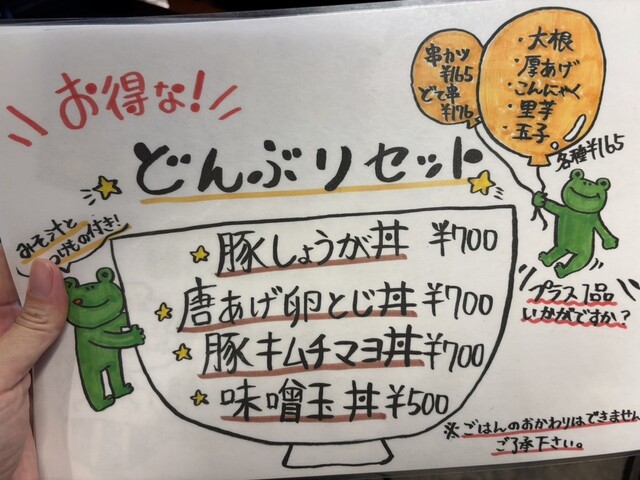 お得な!
どんぶりセット
みそ汁と
つけもの付き!
豚しょうが丼 ¥700
唐あげ卵とじ丼 ¥700
豚キムチマヨ丼 ¥700
味噌玉丼 ¥500
串カツ
¥165
どて串
¥176
・大根
・厚あげ
・こんにゃく
・里芋
・玉子
各種¥165
プラス1品
いかがですか?
※ごはんのおかわりはできません
ご了承下さい。